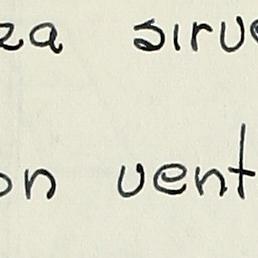 za sirve
on vent